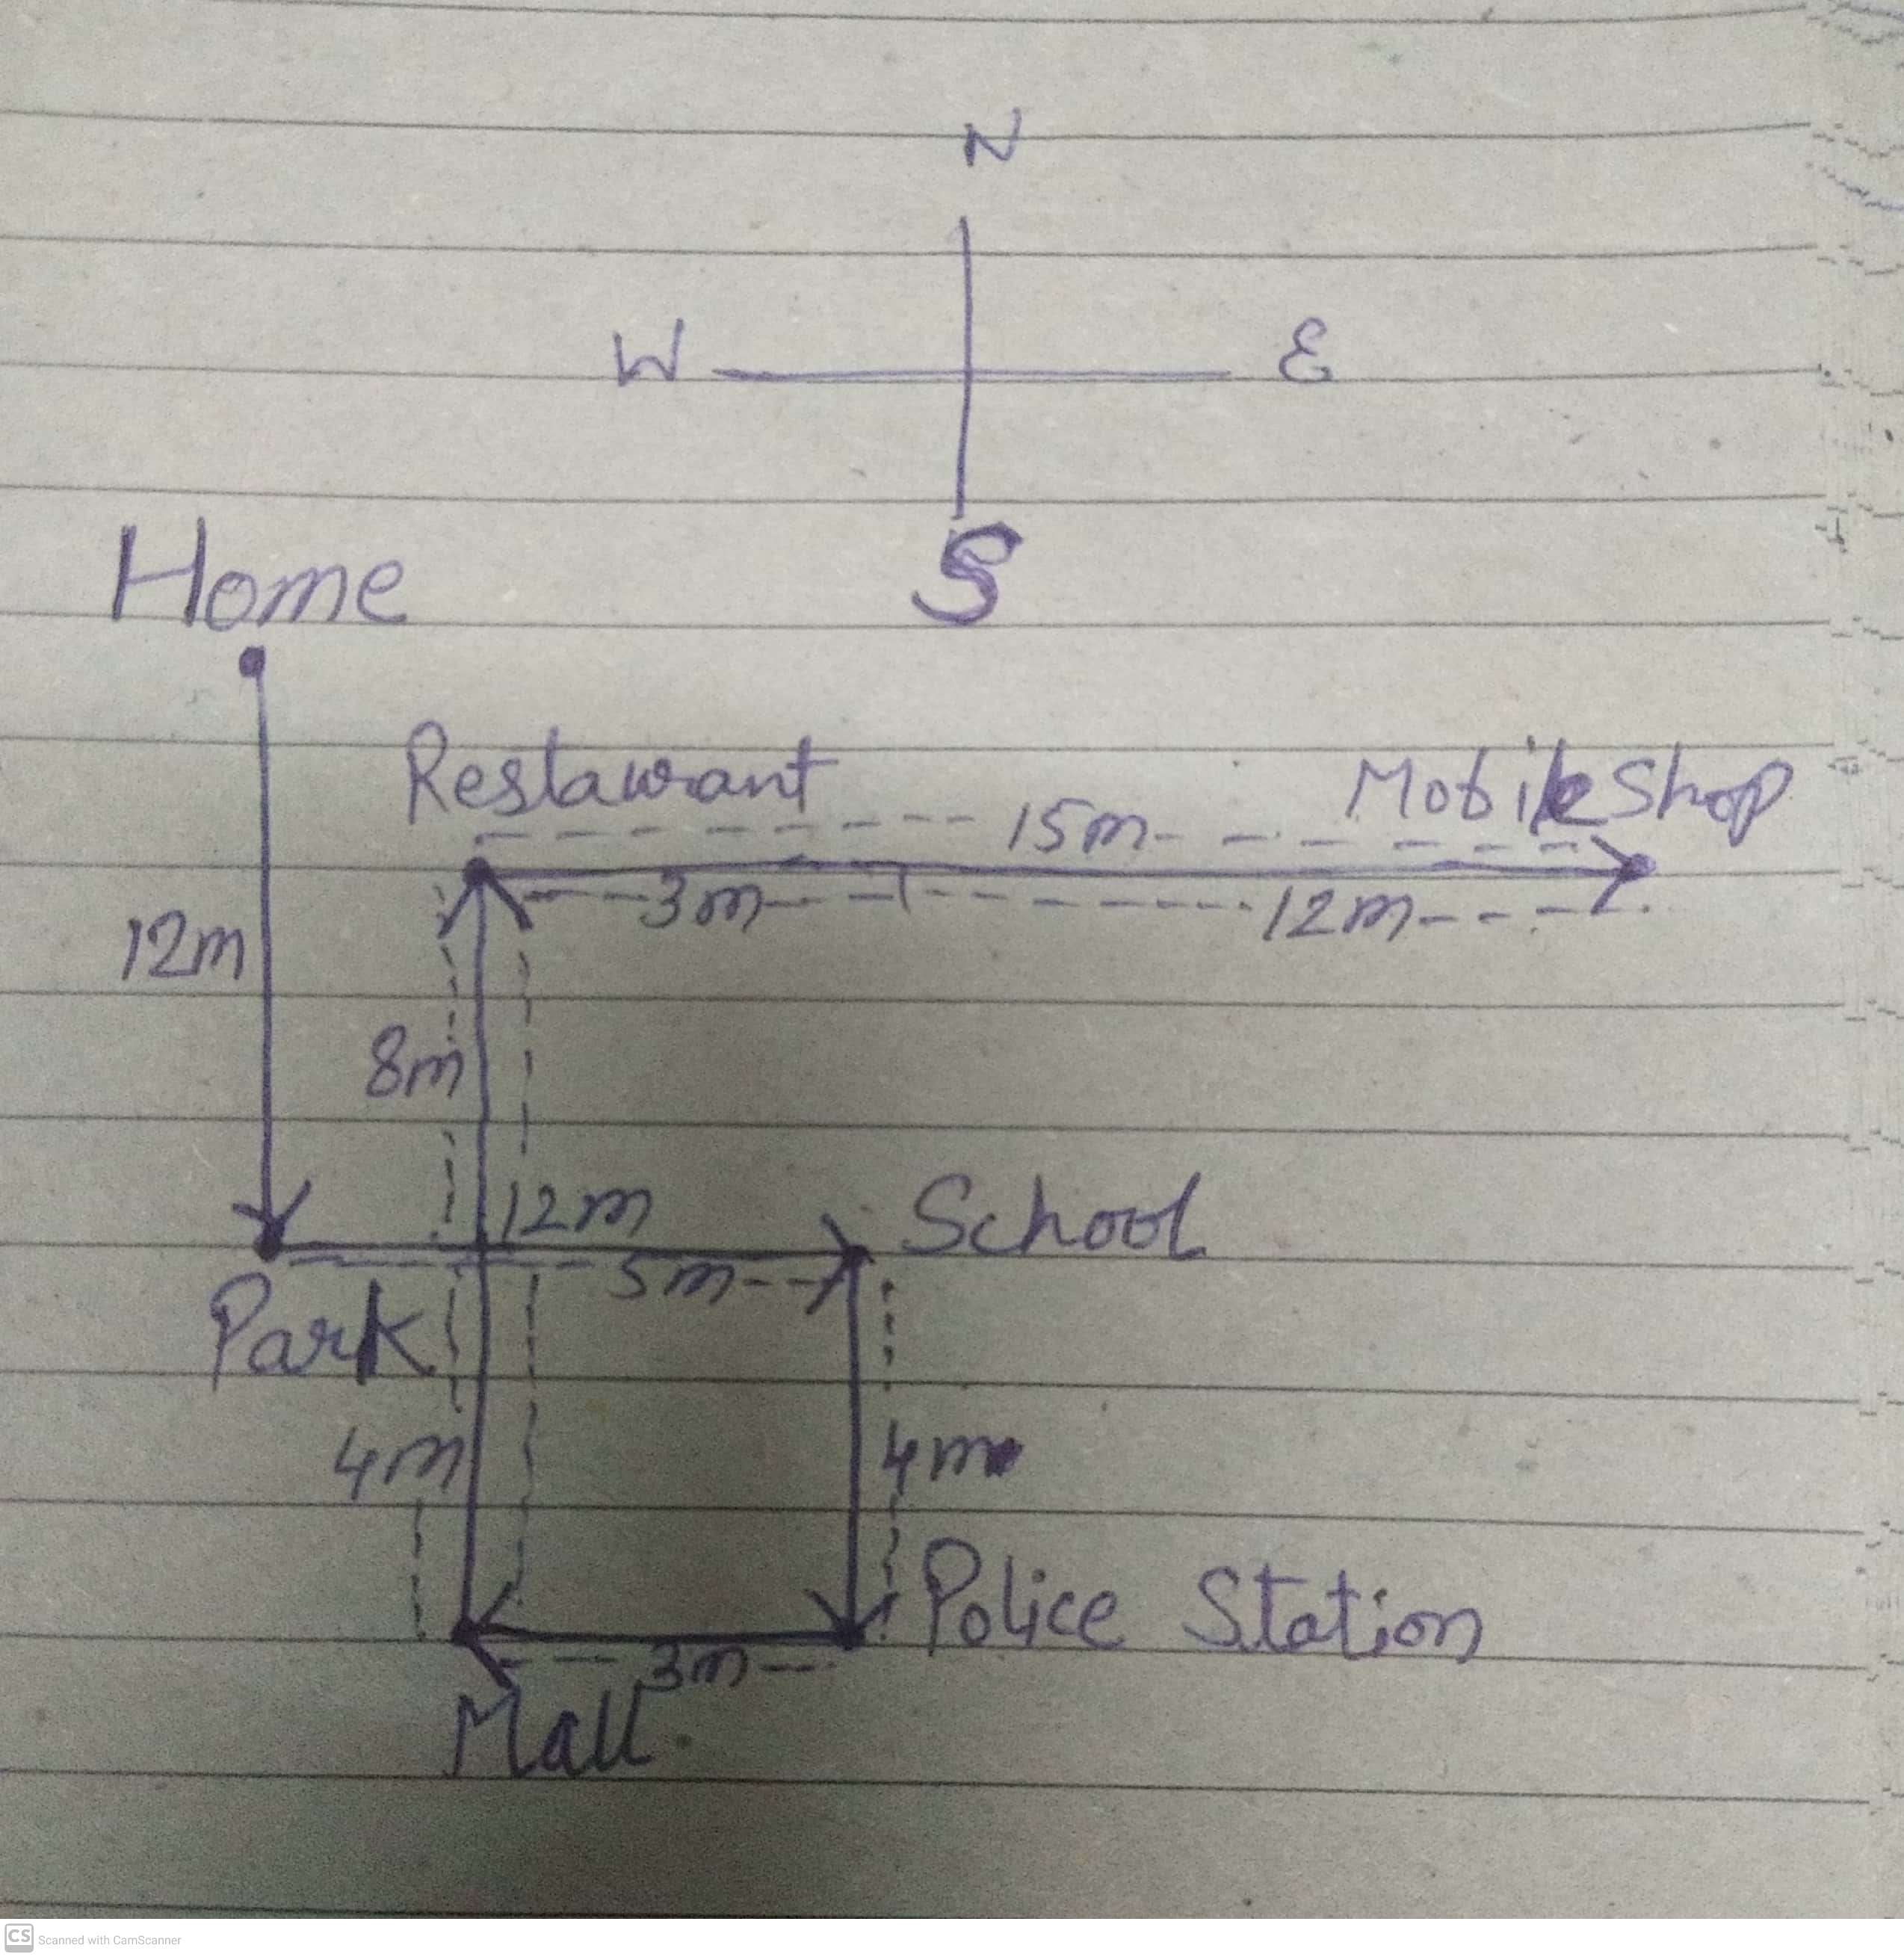 N
W E
S
Home
Restaurant
Mobile Shop
15m
3m
12m
12m
8m
12m
School
5m
Park
4m
4m
Police Station
3m
Mall
CS Scanned with CamScanner